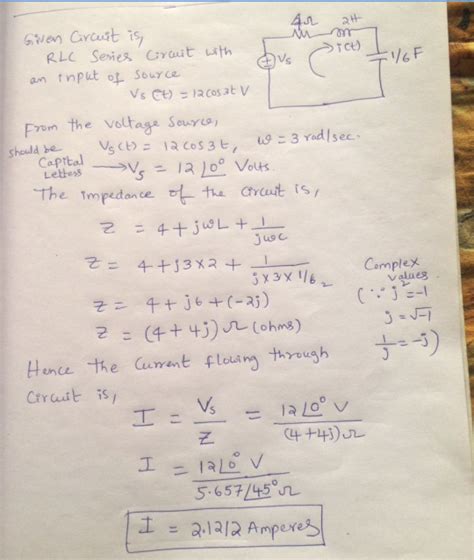 Given Circuit is,
RLC Series Circuit with
an input of source
Vs(t) = 12cos3t V
4Ω
2H
Vs
i(t)
1/6 F
From the voltage source,
should be
Capital
Letters
Vs(t) = 12 cos 3t, ω = 3 rad/sec.
→ Vs = 12∠0° Volts.
The impedance of the circuit is,
Z = 4 + jωL + 1/jωc
Z = 4 + j3×2 + 1/j×3×1/6 2
Z = 4 + j6 + (-2j)
Z = (4+4j) Ω (ohms)
Complex
values
(∵ j² = -1
j = √-1
1/j = -j)
Hence the Current flowing through
Circuit is,
I = Vs/Z = 12∠0° V/(4+4j)Ω
I = 12∠0° V/5.657∠45° Ω
I = 2.1212 Amperes